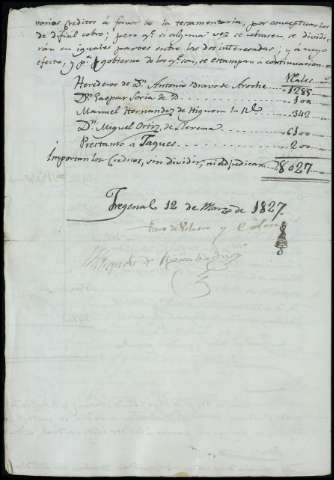 varios creditos á favor de la testamentaria, por conceptuarlos
de dificil cobro; pero q.e si alguna vez se cobrasen se dividi-
rán en iguales partes entre los dos interesados; y á cuyo
efecto, y p.a gobierno de los q.e son, se estampan a continuacion
R.ales
Herederos de D.n Antonio de Aroche 1285
D.n Gaspar Soria de id. 100
Manuel Hernandez de Higuera la R.l 342
D.n Miguel Ortiz, de Llerena 6100
Prestant.o á Jaques 200
Importan los Creditos, sin dividir, ni adjudicar 8027
Fregenal 12 de Marzo de 1827
y
de